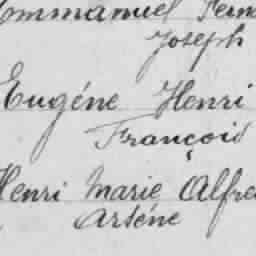 Emmanuel Fern
Joseph
Eugéne Henri
François
Henri Marie Alfre
Arséne